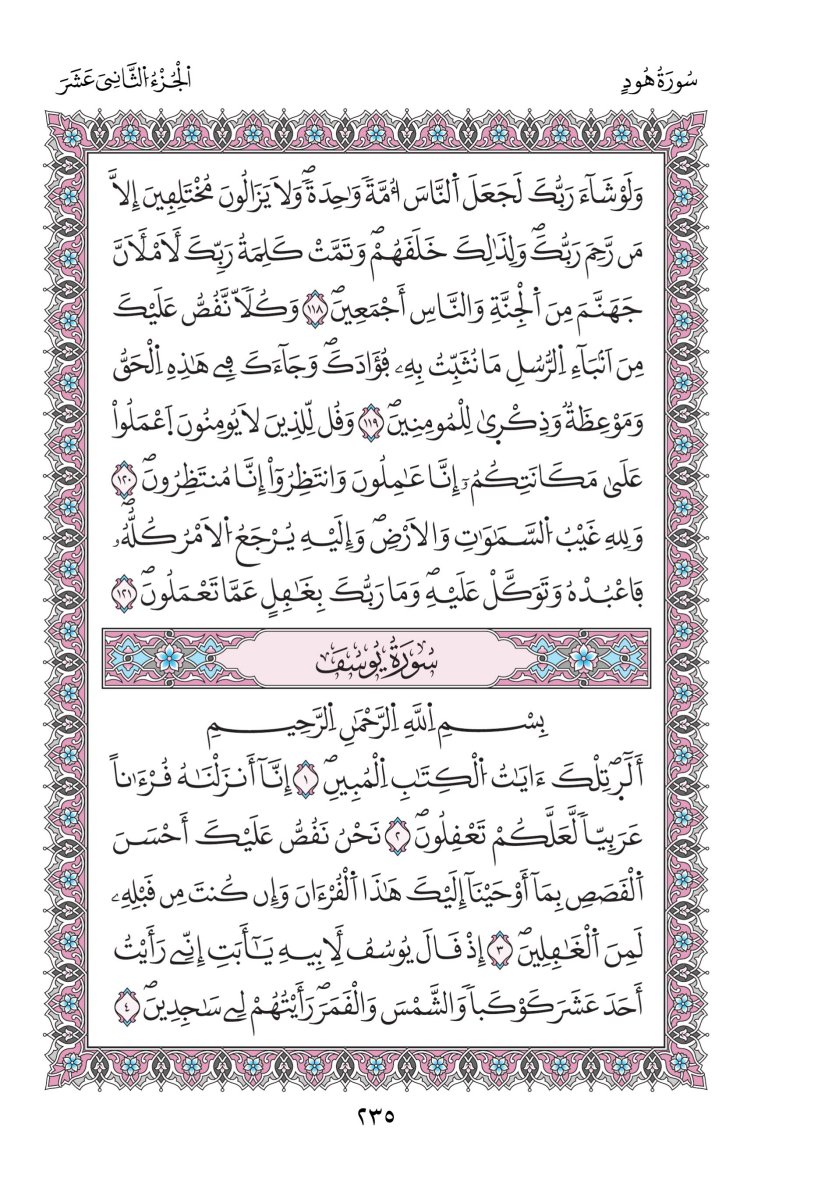 سُورَةُ هُودٍ
اَ۬لْجُزْءُ اُ۬لثَّانِيَ عَشَرَ
وَلَوْ شَآءَ رَبُّكَ لَجَعَلَ اَ۬لنَّاسَ أُمَّةٗ وَٰحِدَةٗۖ وَلَا يَزَالُونَ مُخْتَلِفِينَ إِلَّا
مَن رَّحِمَ رَبُّكَۖ وَلِذَٰلِكَ خَلَقَهُمْۖ وَتَمَّتْ كَلِمَةُ رَبِّكَ لَأَمْلَأَنَّ
جَهَنَّمَ مِنَ اَ۬لْجِنَّةِ وَالنَّاسِ أَجْمَعِينَۖ ١١٨ وَكُلّاٗ نَّقُصُّ عَلَيْكَ
مِنَ اَنۢبَآءِ اِ۬لرُّسُلِ مَا نُثَبِّتُ بِهِۦ فُؤَادَكَۖ وَجَآءَكَ فِے هَٰذِهِ اِ۬لْحَقُّ
وَمَوْعِظَةٞ وَذِكْر۪ىٰ لِلْمُومِنِينَۖ ١١٩ وَقُل لِّلذِينَ لَا يُومِنُونَ اَ۪عْمَلُواْ
عَلَىٰ مَكَانَتِكُمُۥٓ إِنَّا عَٰمِلُونَ وَانتَظِرُوٓاْ إِنَّا مُنتَظِرُونَۖ ١٢٠
وَلِلهِ غَيْبُ اُ۬لسَّمَٰوَٰتِ وَالَارْضِۖ وَإِلَيْهِ يُرْجَعُ اُ۬لَامْرُ كُلُّهُۥۖ
فَاعْبُدْهُ وَتَوَكَّلْ عَلَيْهِۖ وَمَا رَبُّكَ بِغَٰفِلٍ عَمَّا تَعْمَلُونَۖ ١٢١
سُورَةُ يُوسُفَ
بِسْمِ اِ۬للَّهِ اِ۬لرَّحْمَٰنِ اِ۬لرَّحِيمِ
أَلَٓر۪ۖ تِلْكَ ءَايَٰتُ اُ۬لْكِتَٰبِ اِ۬لْمُبِينِۖ ١ إِنَّآ أَنزَلْنَٰهُ قُرْءَٰناً
عَرَبِيّاٗ لَّعَلَّكُمْ تَعْقِلُونَۖ ٢ نَحْنُ نَقُصُّ عَلَيْكَ أَحْسَنَ
اَ۬لْقَصَصِ بِمَآ أَوْحَيْنَآ إِلَيْكَ هَٰذَا اَ۬لْقُرْءَانَ وَإِن كُنتَ مِن قَبْلِهِۦ
لَمِنَ اَ۬لْغَٰفِلِينَۖ ٣ إِذْ قَالَ يُوسُفُ لِأَبِيهِ يَٰٓأَبَتِ إِنِّے رَأَيْتُ
أَحَدَ عَشَرَ كَوْكَباٗ وَالشَّمْسَ وَالْقَمَرَۖ رَأَيْتُهُمْ لِے سَٰجِدِينَۖ ٤
٢٣٥